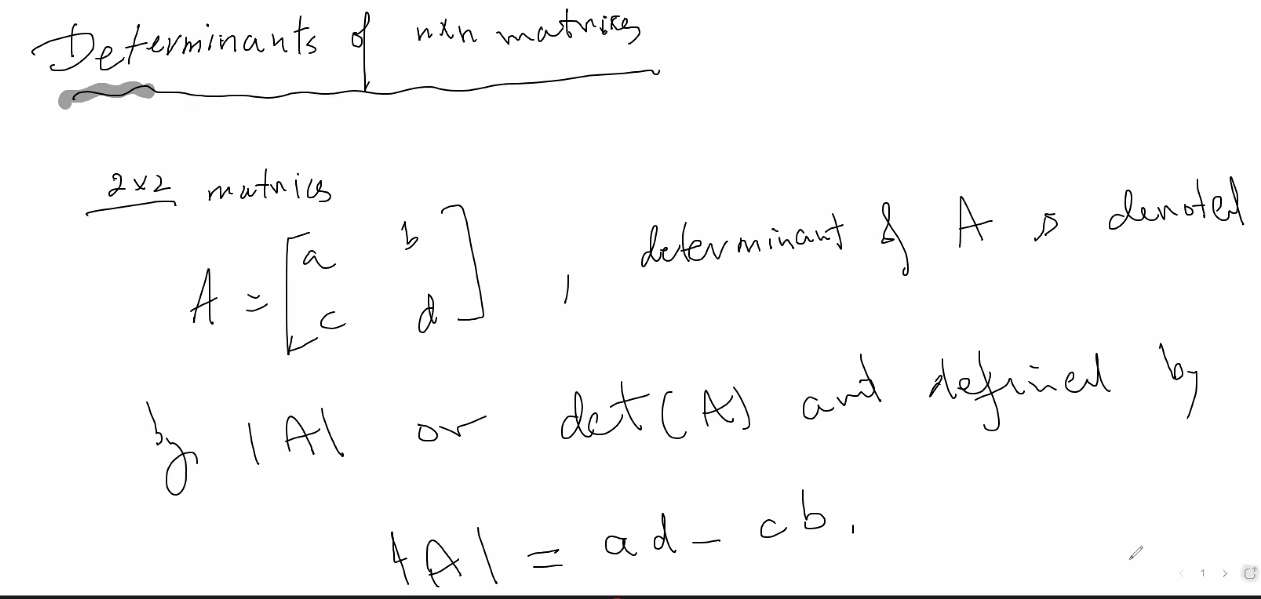 Determinants of n×n matrices
2×2 matrices
A = [a b
c d] , determinant of A is denoted
by |A| or det(A) and defined by
|A| = ad - cb.
1